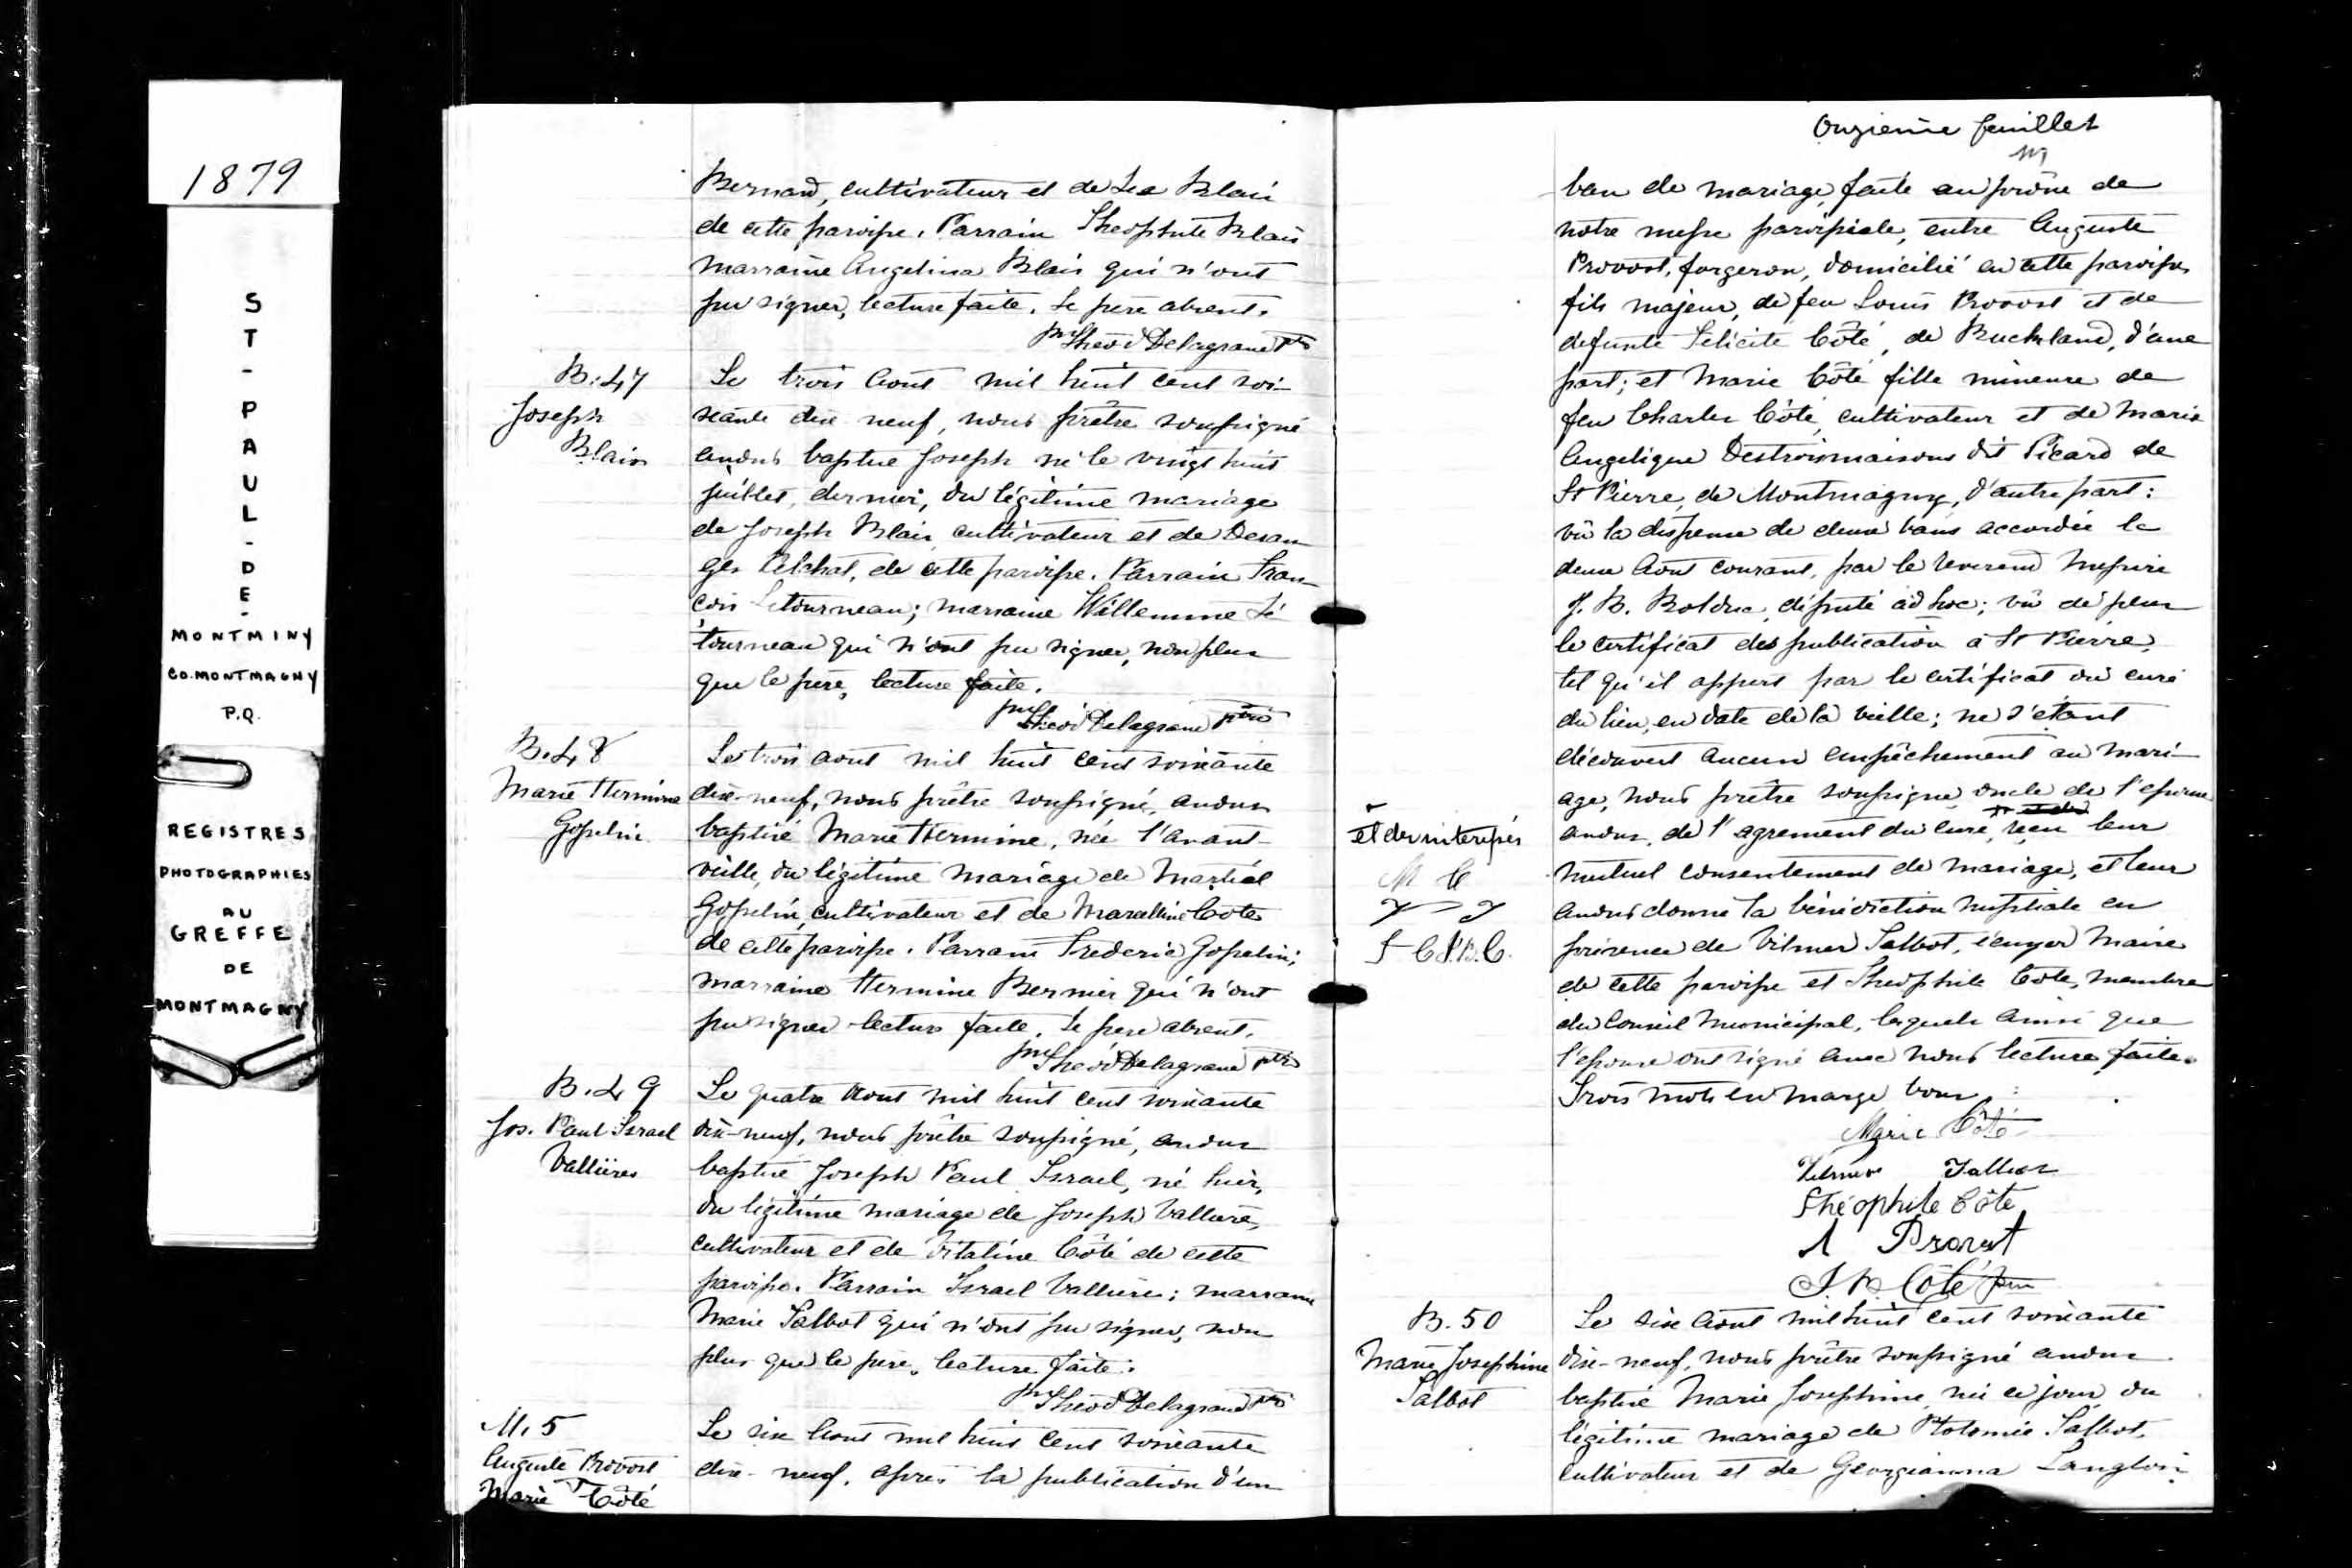 1879
ST-PAUL-DE-
MONTMINY
CO.MONTMAGNY
P.Q.
REGISTRES
PHOTOGRAPHIES
AU
GREFFE
DE
MONTMAGNY
Bernard, cultivateur et de Blais
de cette paroisse. Parrain Theophile Blais
marraine Angelina Blais qui n'ont
pu signer, lecture faite. Le pere absent.
Théod Delagrave ptre
B. 47
Joseph
Blais
Le trois Aout mil huit cent soi-
xante dix neuf, nous prêtre soussigné
avons baptisé Joseph né le vingt huit
juillet, dernier, du légitime mariage
de Joseph Blais cultivateur et de Desan
ges de cette paroisse. Parrain Fran-
çois Letourneau; marraine Lé
tourneau qui n'ont pu signer, non plus
que le père, lecture faite.
Théod Delagrave ptre
B. 48
Marie Hermine
Gosselin
Le trois aout mil huit cent soixante
dix-neuf, nous prêtre soussigné, avons
baptisé Marie Hermine, née l'avant-
veille, du légitime mariage de Martial
Gosselin, cultivateur et de Marcelline Côté
de cette paroisse. Parrain Frederic Gosselin;
marraine Hermine Bernier qui n'ont
pu signer lecture faite. Le pere absent.
Théod Delagrave ptre
B. 49
Jos. Paul Israel
Vallières
Le quatre Aout mil huit cent soixante
dix-neuf, nous prêtre soussigné, avons
baptisé Joseph Paul Israel, né hier,
du légitime mariage de Joseph Vallière,
cultivateur et de Vitaline Côté de cette
paroisse. Parrain Israel Vallière; marraine
Marie Talbot qui n'ont pu signer, non
plus que le père, lecture faite.
Théod Delagrave ptre
M. 5
Auguste Provost
Marie Côté
Le six Aout mil huit cent soixante
dix-neuf, après la publication d'un
Onzième feuillet
ban de mariage, faite au prône de
notre messe paroissiale, entre Auguste
Provost, forgeron, domicilié en cette paroisse,
fils majeur, de feu Louis Provost et de
defunte Félicité Côté, de Buckland, d'une
part; et Marie Côté fille mineure de
feu Charles Côté, cultivateur et de Marie
Angelique Destroismaisons dit Picard de
St Pierre, de Montmagny, d'autre part:
vû la dispense de deux bans accordée le
deux Aout courant, par le reverend Messire
J. B. Bolduc, député ad hoc; vû de plus
le certificat des publication à St Pierre,
tel qu'il appert par le certificat du curé
du lieu, en date de la veille; ne s'étant
découvert aucun empêchement au mari-
age, nous prêtre soussigné oncle de l'epouse
avons, de l'agrement du curé, reçu leur
mutuel consentement de mariage, et leur
avons donné la bénédiction nuptiale en
présence de Vilmer Talbot, écuyer Maire
de cette paroisse et Théophile Côté, membre
du Conseil Municipal, lesquels ainsi que
l'épouse ont signé avec nous lecture faite.
Trois mots en marge bons.
et des interessés
M C
Marie Côté
Vilmer Talbot
Théophile Côté
A Provost
J. B. Côté ptre
B. 50
Marie Josephine
Talbot
Le six Aout mil huit cent soixante
dix-neuf, nous prêtre soussigné avons
baptisé Marie Josephine, née ce jour du
légitime mariage de Ptolomée Talbot,
cultivateur et de Georgianna Langlois